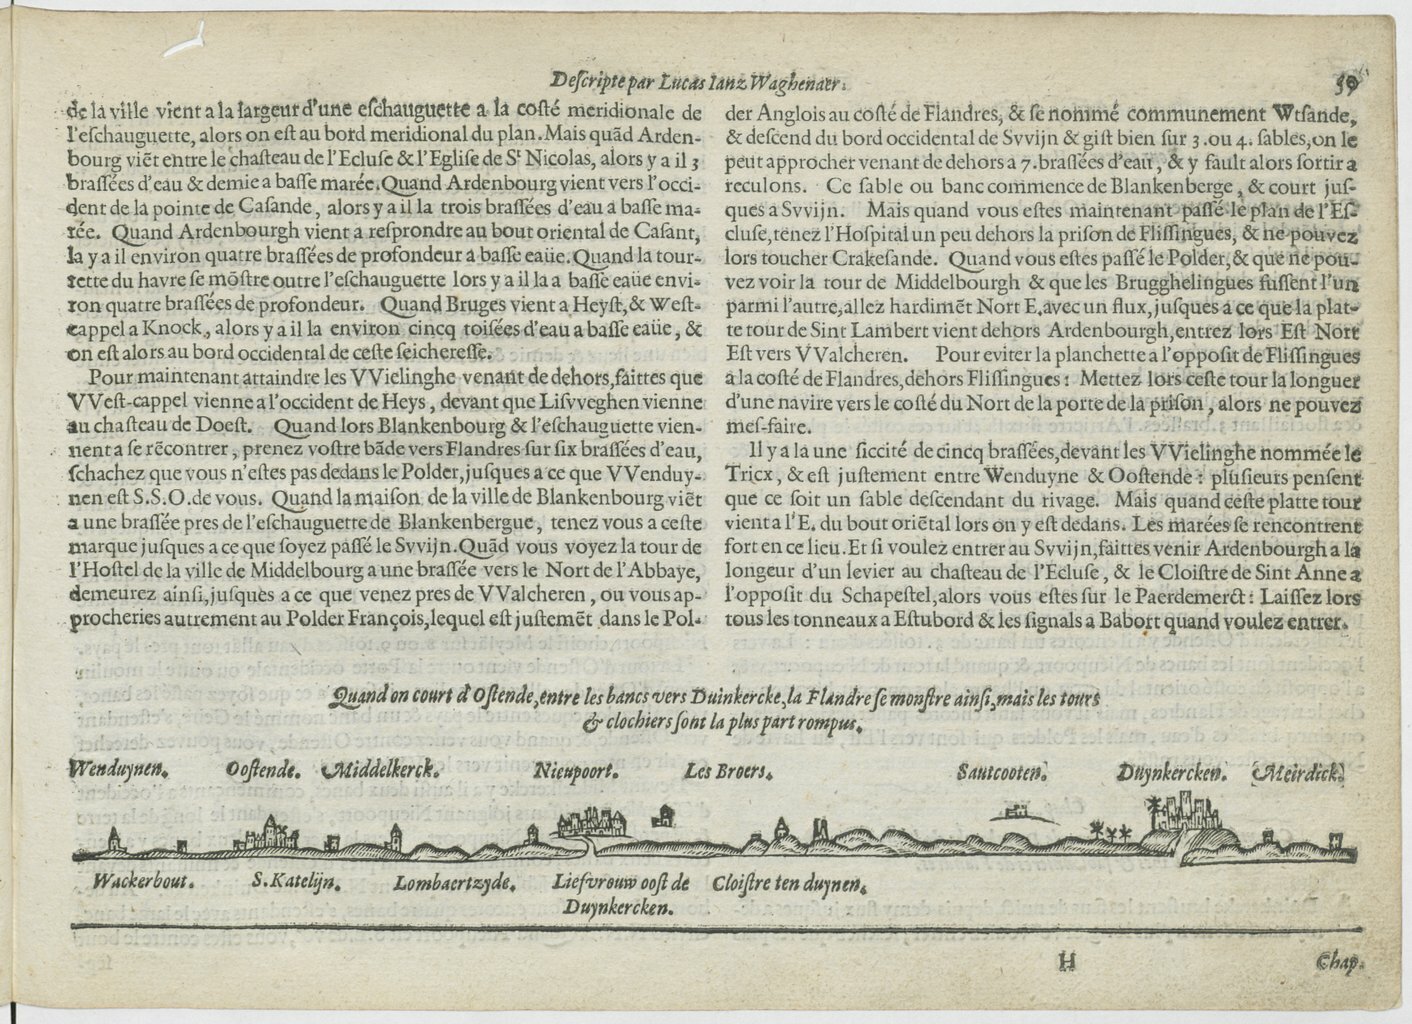 Descripte par Lucas Ianz Waghenaer.
59
de la ville vient a la largeur d'une eschauguette a la costé meridionale de
l'eschauguette, alors on est au bord meridional du plan. Mais quãd Arden-
bourg viẽt entre le chasteau de l'Ecluse & l'Eglise de St Nicolas, alors y a il 3
brassées d'eau & demie a basse marée. Quand Ardenbourg vient vers l'occi-
dent de la pointe de Casande, alors y a il la trois brassées d'eau a basse ma-
rée. Quand Ardenbourgh vient a resprondre au bout oriental de Casant,
la y a il environ quatre brassées de profondeur a basse eaüe. Quand la tour-
rette du havre se mõstre outre l'eschauguette lors y a il la a basse eaüe envi-
ron quatre brassées de profondeur. Quand Bruges vient a Heyst, & West-
cappel a Knock, alors y a il la environ cincq toisées d'eau a basse eaüe, &
on est alors au bord occidental de ceste seicheresse.
Pour maintenant attaindre les VVielinghe venant de dehors, faittes que
VVest-cappel vienne a l'occident de Heys, devant que Lisvveghen vienne
au chasteau de Doest. Quand lors Blankenbourg & l'eschauguette vien-
nent a se rẽcontrer, prenez vostre bãde vers Flandres sur six brassées d'eau,
schachez que vous n'estes pas dedans le Polder, jusques a ce que VVenduy-
nen est S.S.O. de vous. Quand la maison de la ville de Blankenbourg viẽt
a une brassée pres de l'eschauguette de Blankenbergue, tenez vous a ceste
marque jusques a ce que soyez passé le Svvijn. Quãd vous voyez la tour de
l'Hostel de la ville de Middelbourg a une brassée vers le Nort de l'Abbaye,
demeurez ainsi, jusques a ce que venez pres de VValcheren, ou vous ap-
procheries autrement au Polder François, lequel est justemẽt dans le Pol-
der Anglois au costé de Flandres, & se nommé communement Wtsande,
& descend du bord occidental de Svvijn & gist bien sur 3. ou 4. sables, on le
peut approcher venant de dehors a 7. brassées d'eau, & y fault alors sortir a
reculons. Ce sable ou banc commence de Blankenberge, & court jus-
ques a Svvijn. Mais quand vous estes maintenant passé le plan de l'Es-
cluse, tenez l'Hospital un peu dehors la prison de Flissingues, & ne pouvez
lors toucher Crakesande. Quand vous estes passé le Polder, & que ne pou-
vez voir la tour de Middelbourgh & que les Brugghelingues fussent l'un
parmi l'autre, allez hardimẽt Nort E, avec un flux, jusques a ce que la plat-
te tour de Sint Lambert vient dehors Ardenbourgh, entrez lors Est Nort
Est vers VValcheren. Pour eviter la planchette a l'opposit de Flissingues
a la costé de Flandres, dehors Flissingues: Mettez lors ceste tour la longuer
d'une navire vers le costé du Nort de la porte de la prison, alors ne pouvez
mes-faire.
Il y a la une siccité de cincq brassées, devant les VVielinghe nommée le
Tricx, & est justement entre Wenduyne & Oostende: plusieurs pensent
que ce soit un sable descendant du rivage. Mais quand ceste platte tour
vient a l'E. du bout oriẽtal lors on y est dedans. Les marées se rencontrent
fort en ce lieu. Et si voulez entrer au Svvijn, faittes venir Ardenbourgh a la
longeur d'un levier au chasteau de l'Ecluse, & le Cloistre de Sint Anne a
l'opposit du Schapestel, alors vous estes sur le Paerdemerct: Laissez lors
tous les tonneaux a Estubord & les signals a Babort quand voulez entrer.
Quand on court d'Ostende, entre les bancs vers Duinkercke, la Flandre se monstre ainsi, mais les tours
& clochiers sont la plus part rompus.
Wenduynen. Oostende. Middelkerck. Nieupoort. Les Broers. Sautcooten. Duynkercken. Meirdick.
Wackerhout. S. Katelijn. Lombaertzyde. Liefvrouw oost de Cloistre ten duynen.
Duynkercken.
H
Chap.